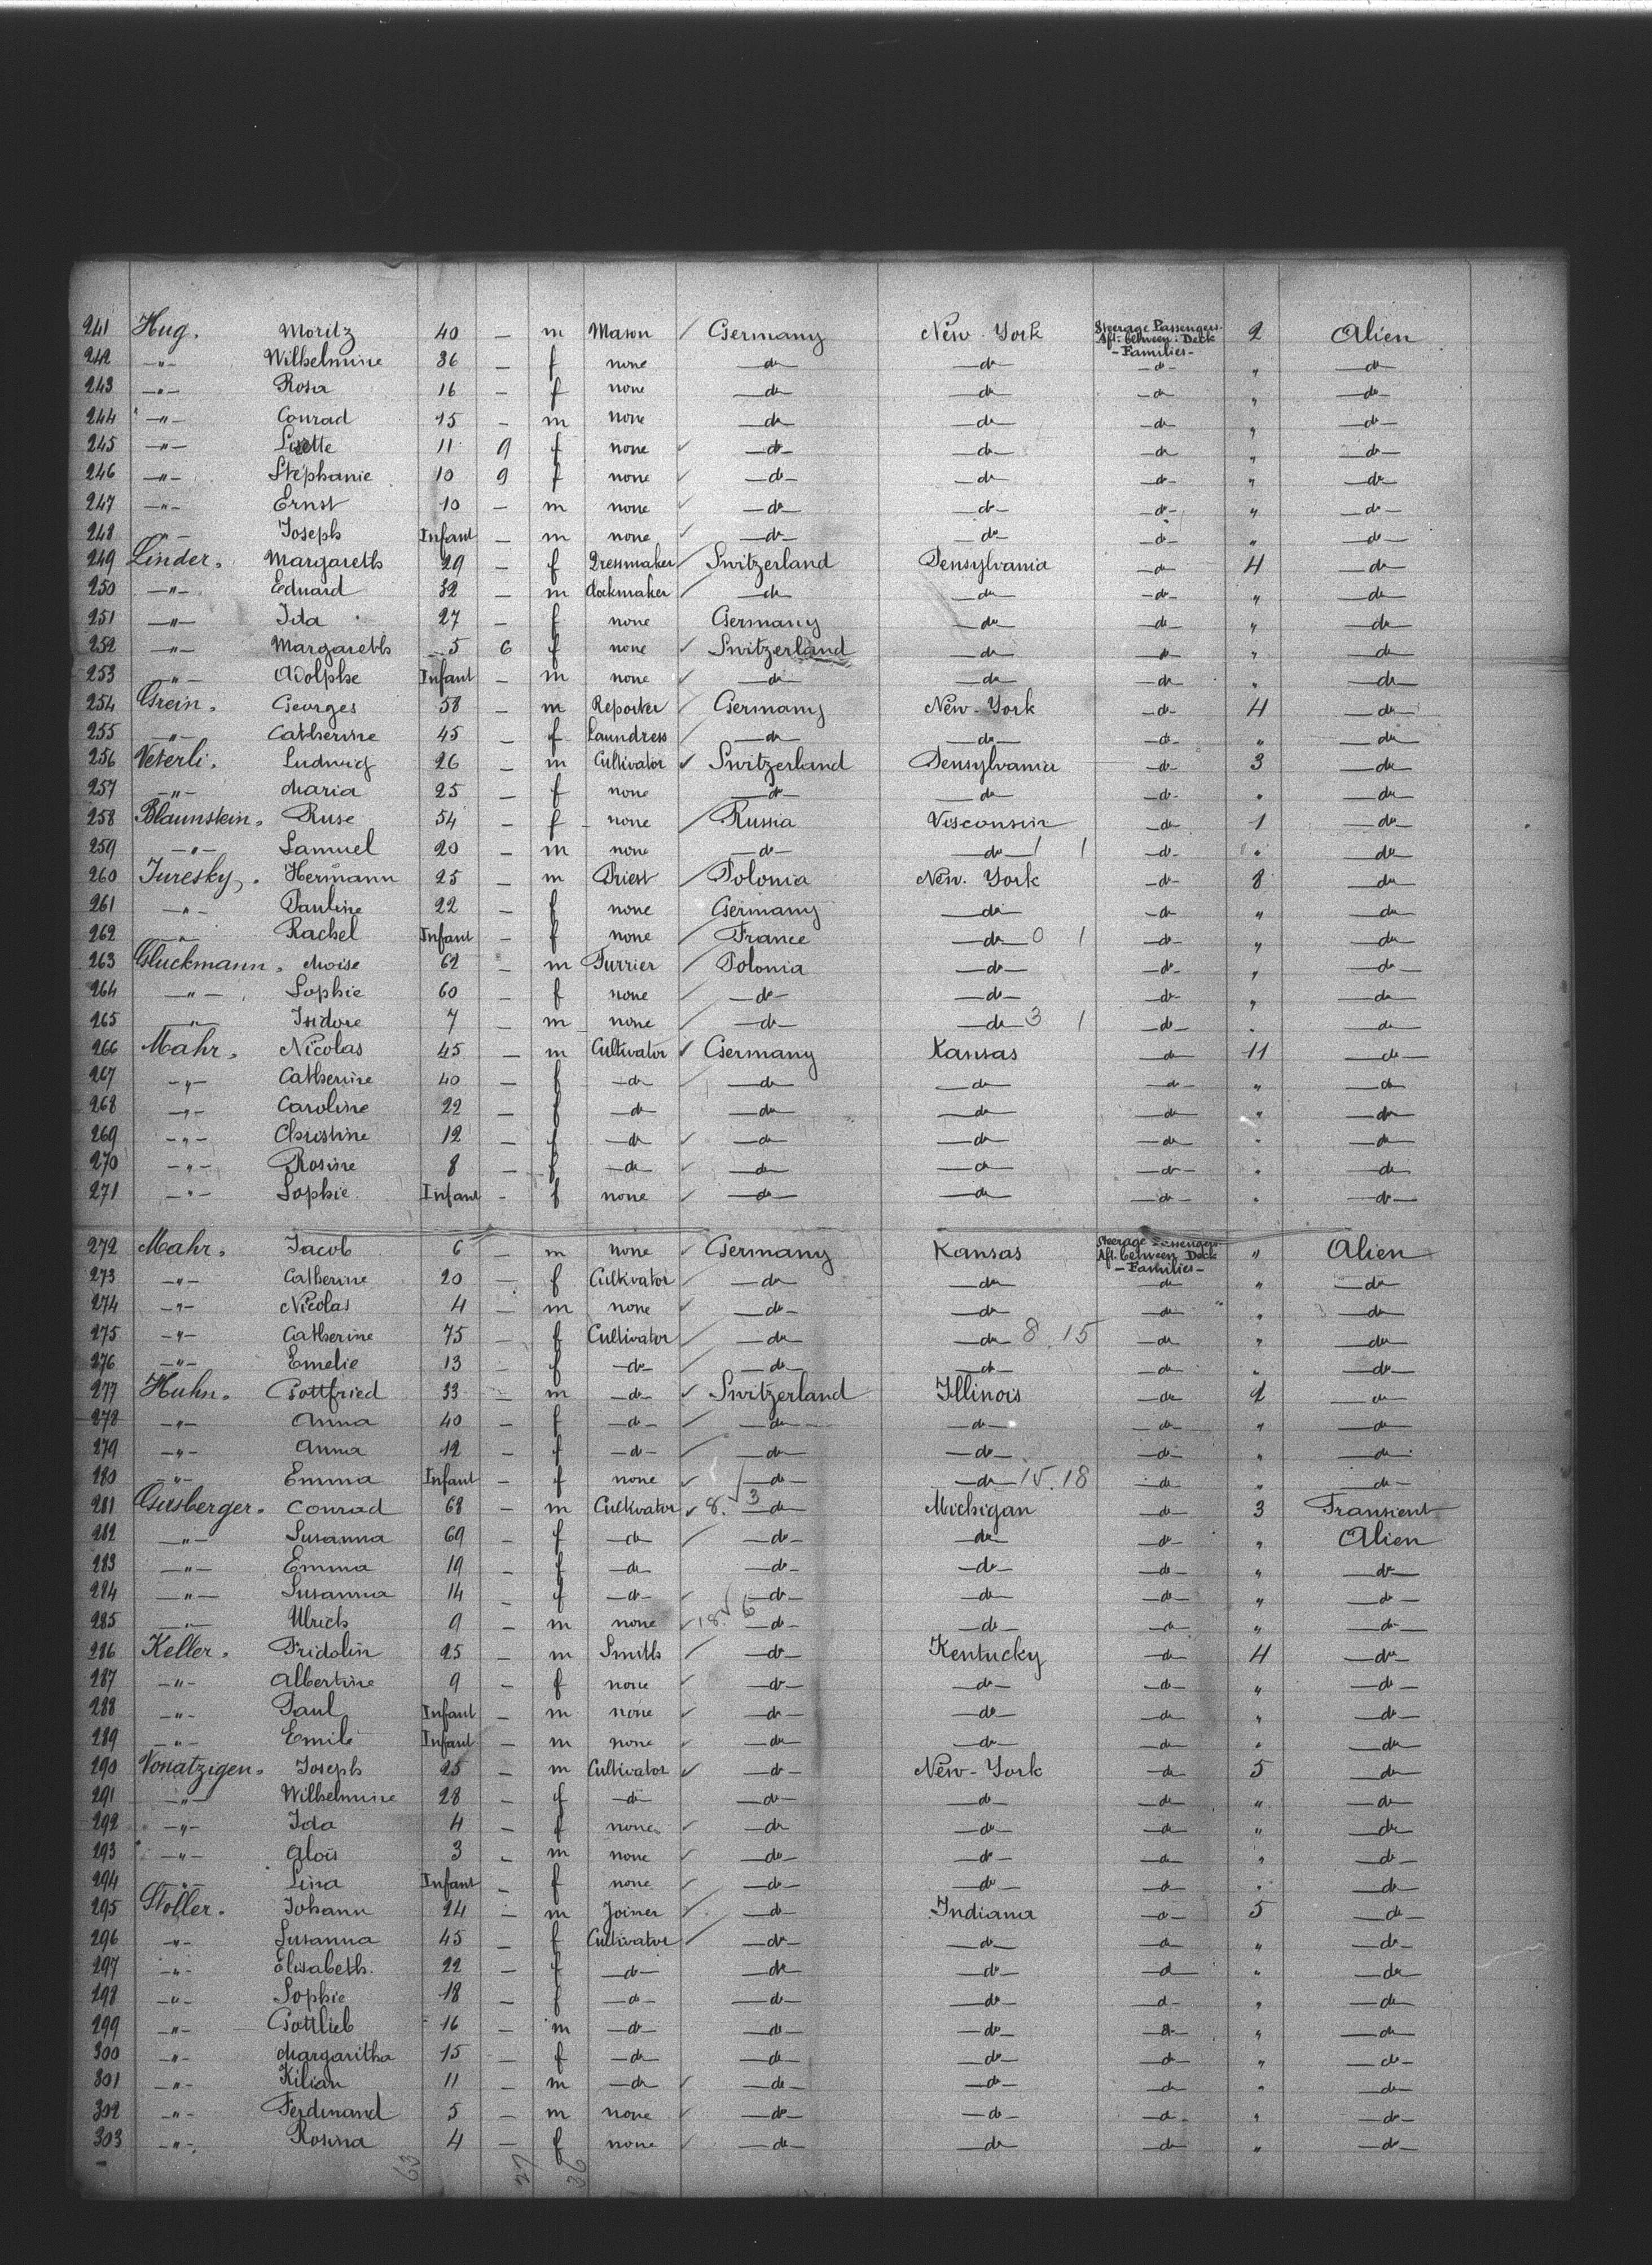 241 Hug. Moritz 40 — m Mason ✓ Germany New-York Steerage Passengers. Aft. between Deck - Families - 2 Alien
242 —"— Wilhelmine 36 — f none —do— —do— —do— " —do—
243 —"— Rosa 16 — f none —do— —do— —do— " —do—
244 —"— Conrad 15 — m none —do— —do— —do— " —do—
245 —"— Lisette 11 9 f none ✓ —do— —do— —do— " —do—
246 —"— Stéphanie 10 9 f none ✓ —do— —do— —do— " —do—
247 —"— Ernst 10 — m none ✓ —do— —do— —do— " —do—
248 —"— Joseph Infant — m none ✓ —do— —do— —do— " —do—
249 Linder. Margareth 29 — f Dressmaker ✓ Switzerland Pensylvania —do— 4 —do—
250 —"— Eduard 32 — m clockmaker ✓ —do— —do— —do— " —do—
251 —"— Ida 27 — f none Germany —do— —do— " —do—
252 —"— Margareth 5 6 f none ✓ Switzerland —do— —do— " —do—
253 —"— Adolphe Infant — m none ✓ —do— —do— —do— " —do—
254 Grein. Georges 58 — m Reporter ✓ Germany New-York —do— 4 —do—
255 —"— Catherine 45 — f Laundress ✓ —do— —do— —do— " —do—
256 Veterli. Ludwig 26 — m Cultivator ✓ Switzerland Pensylvania —do— 3 —do—
257 —"— Maria 25 — f none —do— —do— —do— " —do—
258 Blaunstein. Ruse 54 — f none ✓ Russia Visconsin —do— 1 —do—
259 —"— Samuel 20 — m none —do— —do— 1 1 —do— " —do—
260 Juresky. Hermann 25 — m Priest ✓ Polonia New-York —do— 8 —do—
261 —"— Pauline 22 — f none Germany —do— —do— " —do—
262 —"— Rachel Infant — f none ✓ France —do— 0 1 —do— " —do—
263 Gluckmann. Moise 62 — m Furrier ✓ Polonia —do— —do— " —do—
264 —"— Sophie 60 — f none ✓ —do— —do— —do— " —do—
265 —"— Isidore 7 — m none ✓ —do— —do— 3 1 —do— " —do—
266 Mahr. Nicolas 45 — m Cultivator ✓ Germany Kansas —do— 11 —do—
267 —"— Catherine 40 — f —do— ✓ —do— —do— —do— " —do—
268 —"— Caroline 22 — f —do— —do— —do— —do— " —do—
269 —"— Christine 12 — f —do— ✓ —do— —do— —do— " —do—
270 —"— Rosine 8 — f —do— ✓ —do— —do— —do— " —do—
271 —"— Sophie Infant — f none ✓ —do— —do— —do— " —do—
272 Mahr. Jacob 6 — m none ✓ Germany Kansas Steerage Passengers. Aft. between Deck - Families - " Alien
273 —"— Catherine 20 — f Cultivator ✓ —do— —do— —do— " —do—
274 —"— Nicolas 4 — m none ✓ —do— —do— —do— " —do—
275 —"— Catherine 75 — f Cultivator ✓ —do— —do— 8. 15 —do— " —do—
276 —"— Emelie 13 — f —do— ✓ —do— —do— —do— " —do—
277 Huhn. Gottfried 33 — m —do— ✓ Switzerland Illinois —do— 2 —do—
278 —"— Anna 40 — f —do— ✓ —do— —do— —do— " —do—
279 —"— Anna 12 — f —do— ✓ —do— —do— —do— " —do—
280 —"— Emma Infant — f none ✓ —do— —do— 15. 18 —do— " —do—
281 Girsberger. Conrad 68 — m Cultivator ✓ 8. √3 —do— Michigan —do— 3 Transient
282 —"— Susanna 69 — f —do— ✓ —do— —do— —do— " Alien
283 —"— Emma 19 — f —do— —do— —do— —do— " —do—
284 —"— Susanna 14 — f —do— ✓ —do— —do— —do— " —do—
285 —"— Ulrich 9 — m none ✓ 18. √6 —do— —do— —do— " —do—
286 Keller. Fridolin 25 — m Smith ✓ —do— Kentucky —do— 4 —do—
287 —"— Albertine 9 — f none ✓ —do— —do— —do— " —do—
288 —"— Paul Infant — m none ✓ —do— —do— —do— " —do—
289 —"— Emile Infant — m none ✓ —do— —do— —do— " —do—
290 Vonatzigen. Joseph 25 — m Cultivator ✓ —do— New-York —do— 5 —do—
291 —"— Wilhelmine 28 — f —do— —do— —do— —do— " —do—
292 —"— Ida 4 — f none ✓ —do— —do— —do— " —do—
293 —"— Alois 3 — m none ✓ —do— —do— —do— " —do—
294 —"— Lina Infant — f none ✓ —do— —do— —do— " —do—
295 Stoller. Johann 24 — m Joiner ✓ —do— Indiana —do— 5 —do—
296 —"— Susanna 45 — f Cultivator ✓ —do— —do— —do— " —do—
297 —"— Elisabeth. 22 — f —do— —do— —do— —do— " —do—
298 —"— Sophie 18 — f —do— —do— —do— —do— " —do—
299 —"— Gottlieb 16 — m —do— —do— —do— —do— " —do—
300 —"— Margaritha 15 — f —do— —do— —do— —do— " —do—
301 —"— Kilian 11 — m —do— ✓ —do— —do— —do— " —do—
302 —"— Ferdinand 5 — m none ✓ —do— —do— —do— " —do—
303 —"— Rosina 4 — f none ✓ —do— —do— —do— " —do—
63 27 36